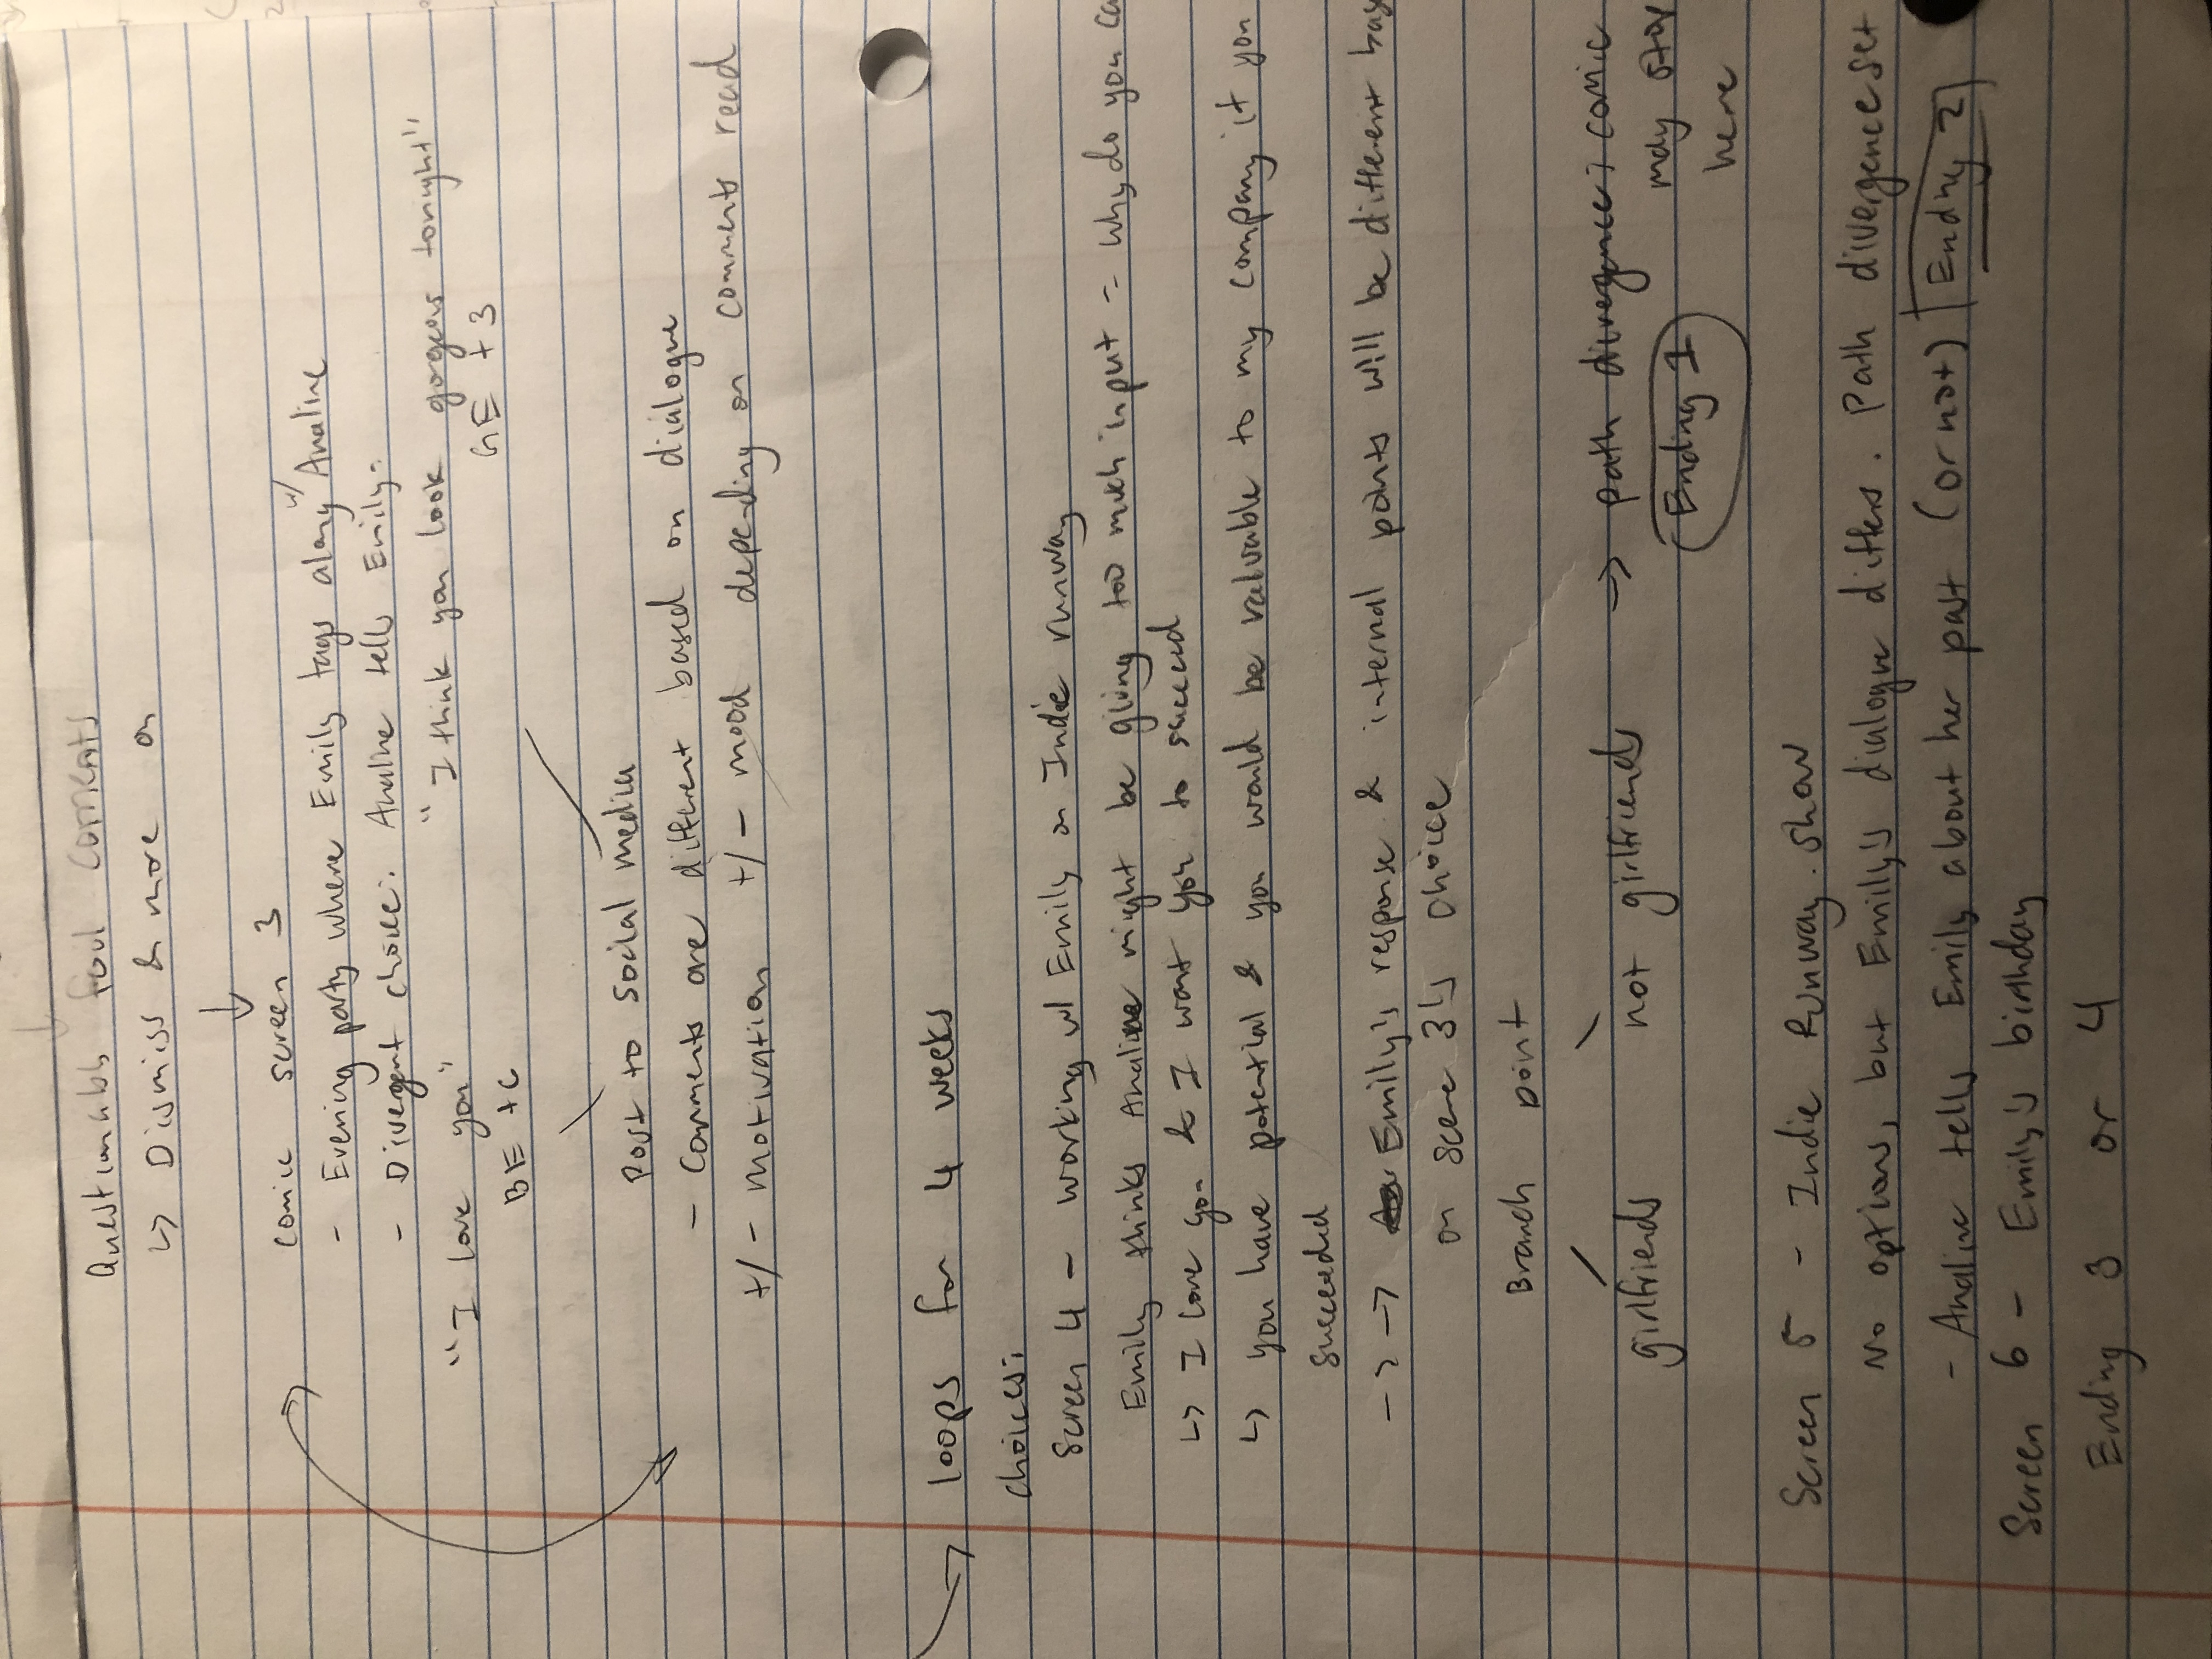 Questionable foul comments
↳ Dismiss & move on
↓
comic screen 3
- Evening party where Emily tags along w/ Analine
- Divergent choice: Analine tells Emily:
"I love you" "I think you look gorgeous tonight"
BE +6 GE +3
Post to social media
- Comments are different based on dialogue
+/- motivation +/- mood depending on comments read
→ loops for 4 weeks
choices:
Screen 4 - working w/ Emily on Indie runway
Emily thinks Analine might be giving too much input = why do you ca
↳ I love you & I want you to succeed
↳ you have potential & you would be valuable to my company if you
succeeded
->-> Emily's response & internal points will be different bas
on scene 3's choice
Branch point
girlfriends not girlfriends → path divergence; comic
may stop
Ending 1
here
Screen 5 - Indie Runway show
No options, but Emily's dialogue differs. Path divergence set
- Analine tells Emily about her past (or not) Ending 2
Screen 6 - Emily's birthday
Ending 3 or 4